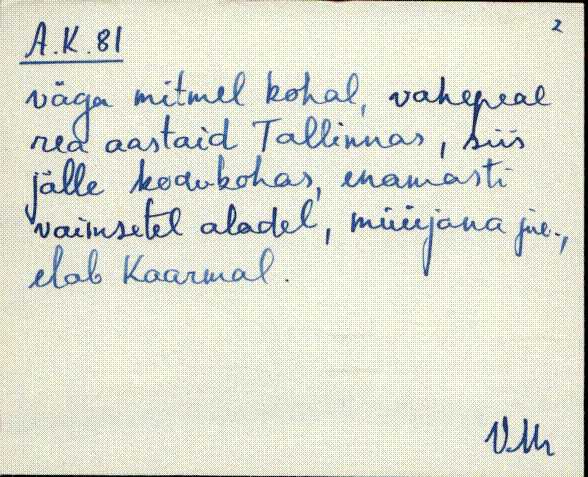 2
A.K. 81
väga mitmel kohal, vahepeal
rea aastaid Tallinnas, siis
jälle kodukohas, enamasti
vaimsetel aladel, müüjana jne.,
elab Kaarmal.
V.M